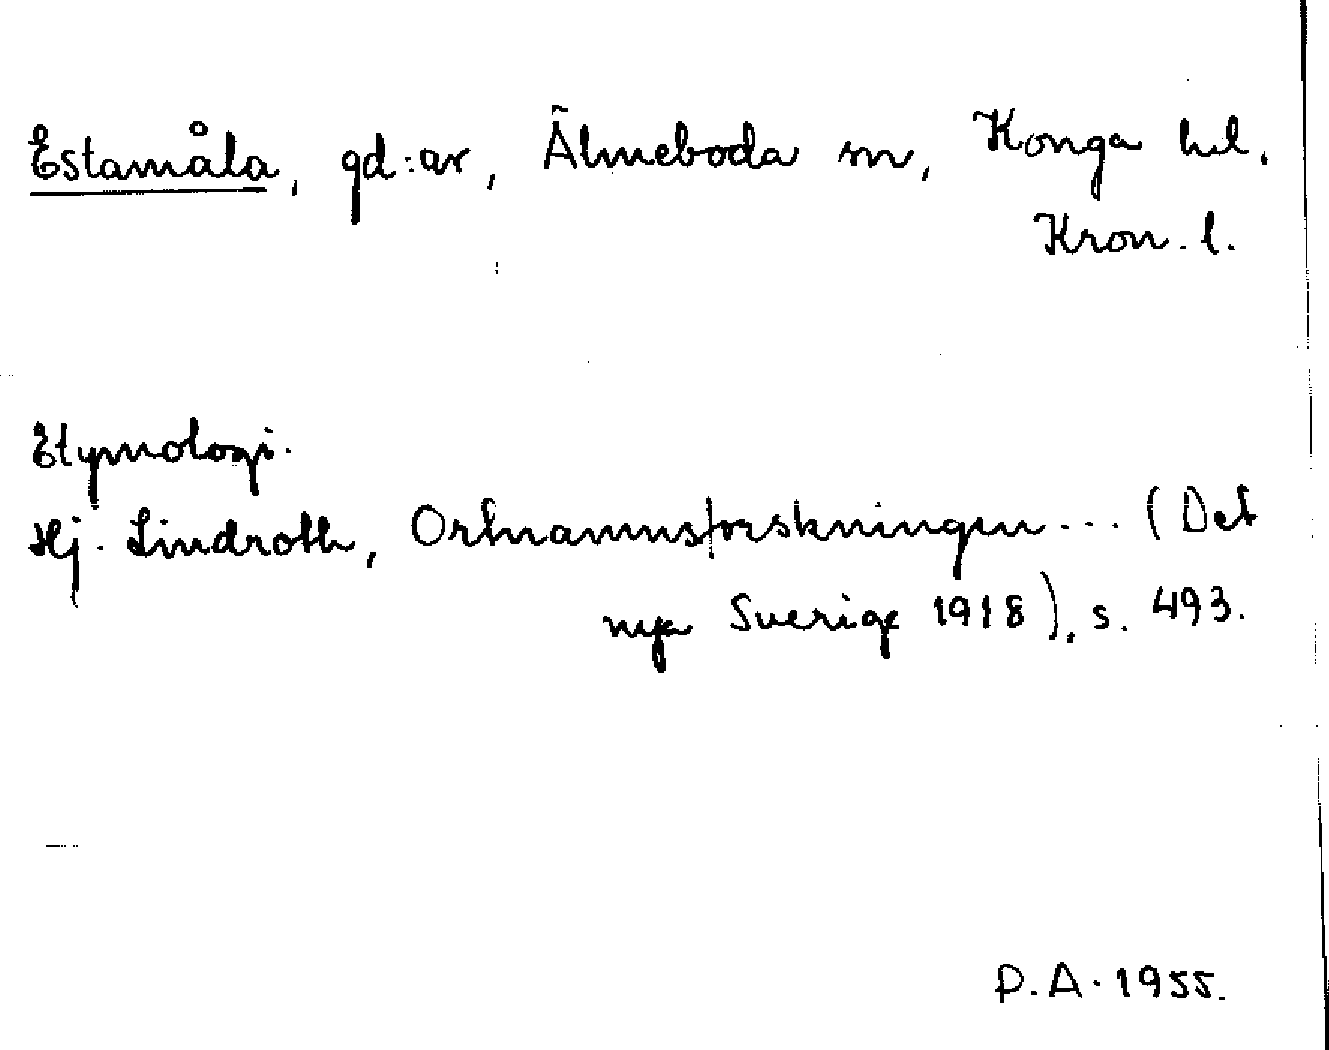 Estamåla, gd:ar, Älmeboda sn, Konga hd.
Kron. l.
Etymologi.
Hj. Lindroth, Ortnamnsforskningen... (Det
nya Sverige 1918), s. 493.
P.A. 1955.